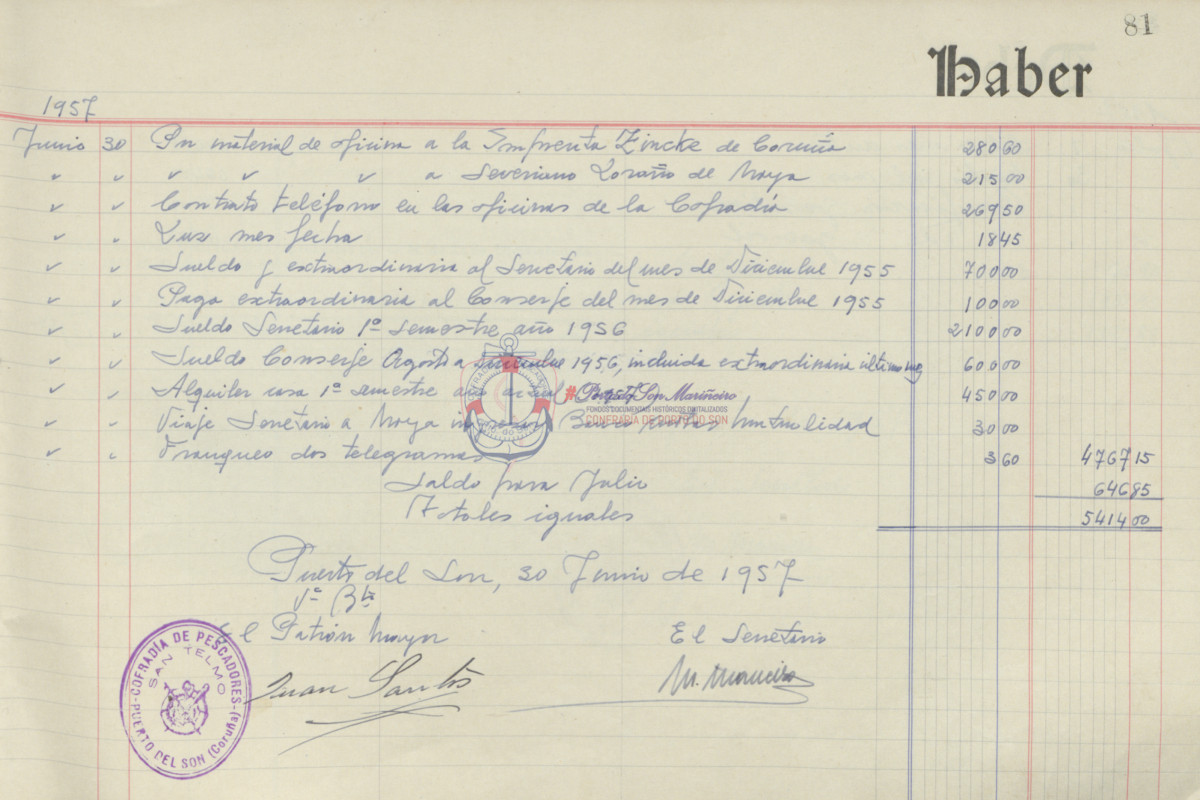 81
Haber
1957
Junio 30 Pn material de oficina a la Imprenta Zincke de Coruña 280 60
" " " " " a Severiano Loraño de Noya 215 00
" " Contrato teléfono en las oficinas de la Cofradía 269 50
" " Luz mes fecha 18 45
" " Sueldo y extraordinaria al Secretario del mes de Diciembre 1955 700 00
" " Paga extraordinaria al Conserje del mes de Diciembre 1955 100 00
" " Sueldo Secretario 1º semestre año 1956 2100 00
" " Sueldo Conserje Agosto a Diciembre 1956, incluida extraordinaria último mes 600 00
" " Alquiler casa 1º semestre año actual 450 00
" " Viaje Secretario a Noya Banco Mutualidad 30 00
" " Franqueo dos telegramas 3 60 4767 15
Saldo para Julio 646 85
Totales iguales 5414 00
#PortodoSon Mariñeiro
FONDOS DOCUMENTAIS HISTÓRICOS DIXITALIZADOS
CONFRARÍA DE PORTO DO SON
Puerto del Son, 30 Junio de 1957
Vº Bº
El Patrón Mayor El Secretario
Juan Santos
COFRADÍA DE PESCADORES
SAN TELMO
PUERTO DEL SON (Coruña)